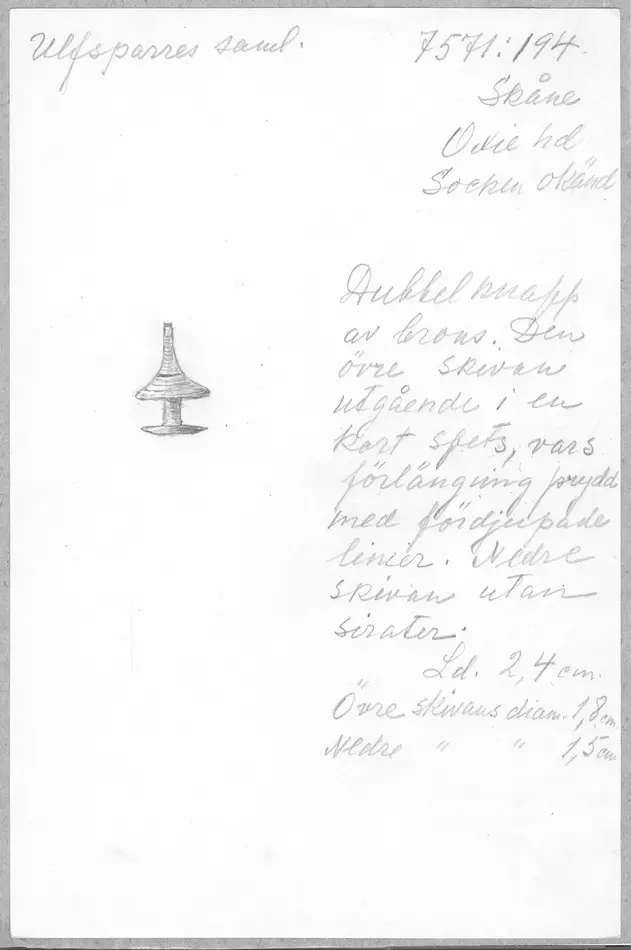 Ulfsparres saml.
7571:194
Skåne
Oxie hd
Socken okänd
Dubbelknapp
av brons. Den
övre skivan
utgående i en
kort spets, vars
förlängning prydd
med fördjupade
linier. Nedre
skivan utan
sirater.
Ld. 2,4 cm.
Övre skivans diam. 1,8 cm.
Nedre " " 1,5 cm